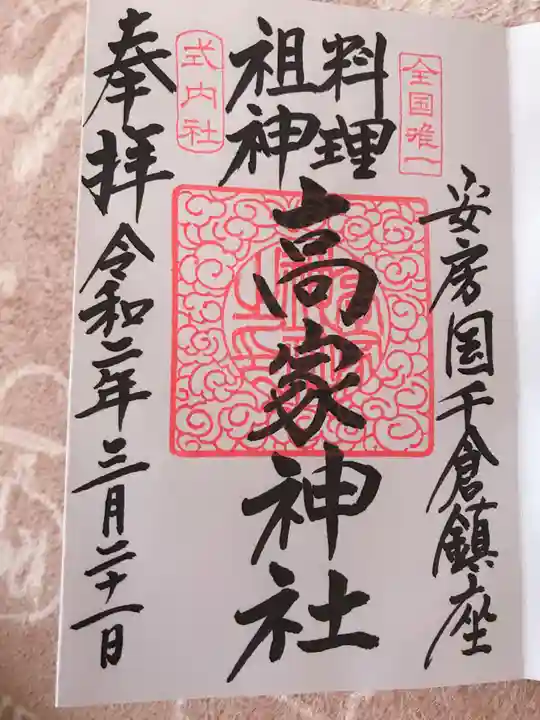 全国唯一
安房国千倉鎮座
料理
祖神
高家神社
式内社
奉拝
令和二年三月二十一日